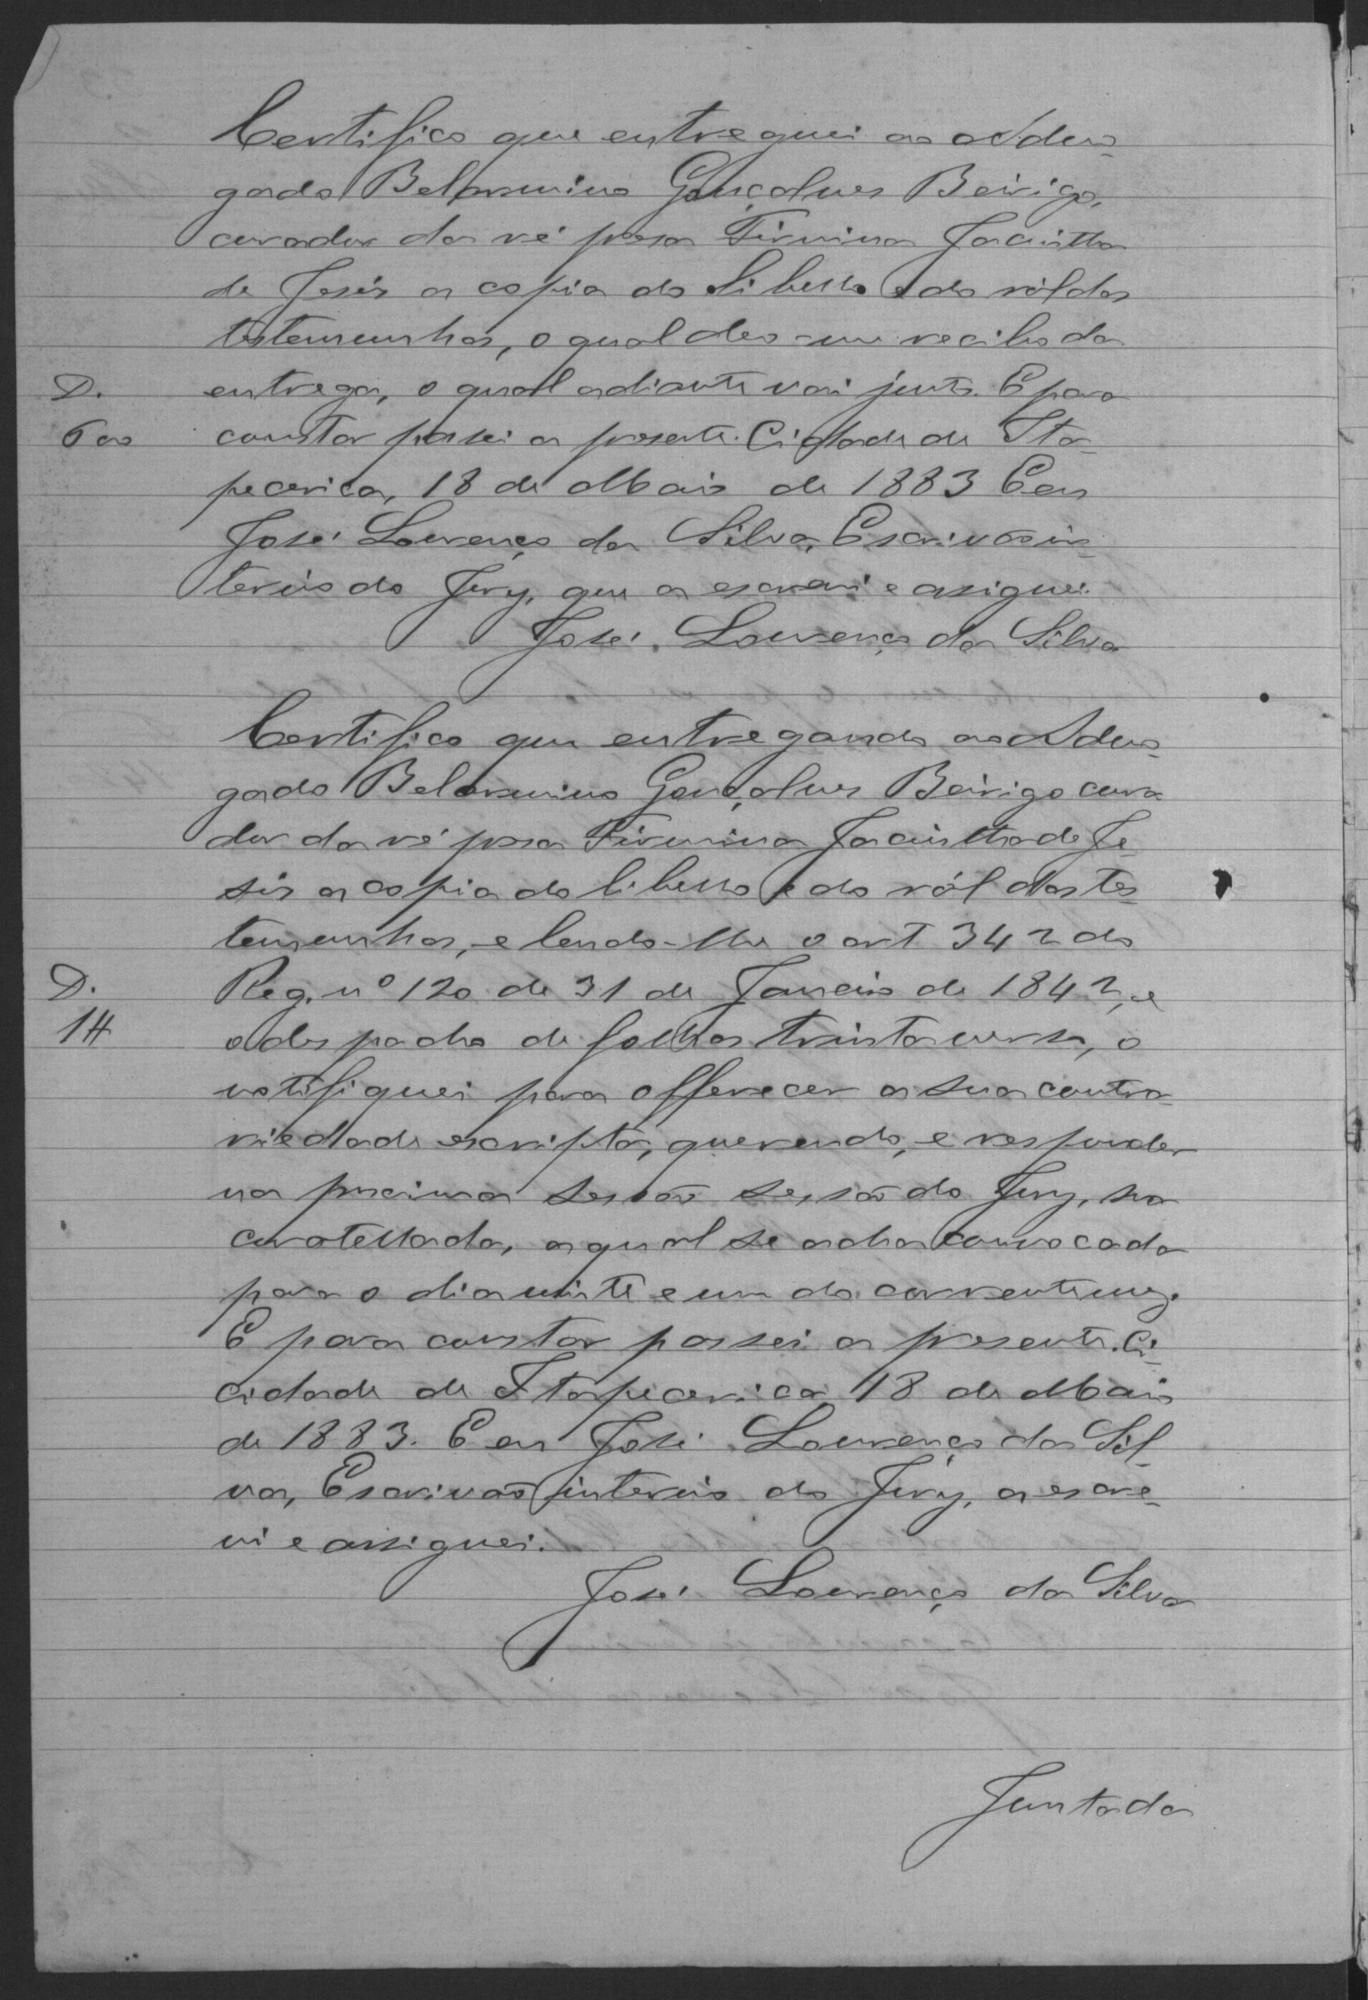 Certifico que entreguei ao Advo-
gado Belarmino Gonçalves Beirigo,
curador da ré presa Firmina Jacintha
de Jesús a copia do libello e do ról das
testemunhas, o qual deo-me recibo da
D. entrega, o qual adiante vai junto. E para
600 constar passei a presente. Cidade de Ita-
pecerica, 18 de Maio de 1883 E eu
José Lourenço da Silva, Escrivão in-
terino do Jury, que a escrevi e asignei.
José Lourenço da Silva
Certifico que entregando ao Advo-
gado Belarmino Gonçalves Beirigo cura
dor da ré presa Firmina Jacintha de Je-
sús a copia do libello e do ról das tes-
temunhas, e lendo-lhe o art 342 do
D. Reg. nº 120 de 31 de Janeiro de 1842, e
1# o despacho de folhas trinta verso, o
notifiquei para offerecer a sua contra-
riedade escripta, querendo, e responder
na proxima sessão sessão do Jury, sua
curatellada, a qual se acha convocada
para o dia vinte e um do corrente mez.
E para constar passei a presente. Ci-
cidade de Itapecerica 18 de Maio
de 1883. E eu José Lourenço da Sil-
va, Escrivão interino do Jury, a escre-
vi e assignei.
José Lourenço da Silva
Juntada